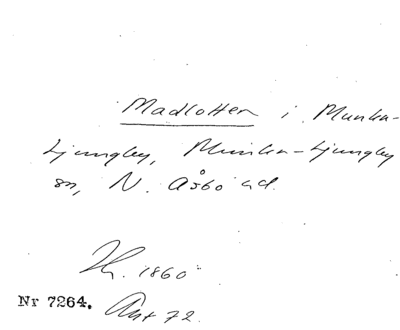 Madlotten i Munka-
Ljungby, Munka-Ljungby
sn, N. Åsbo hd.
1860
Nr 7264. Ant 72.